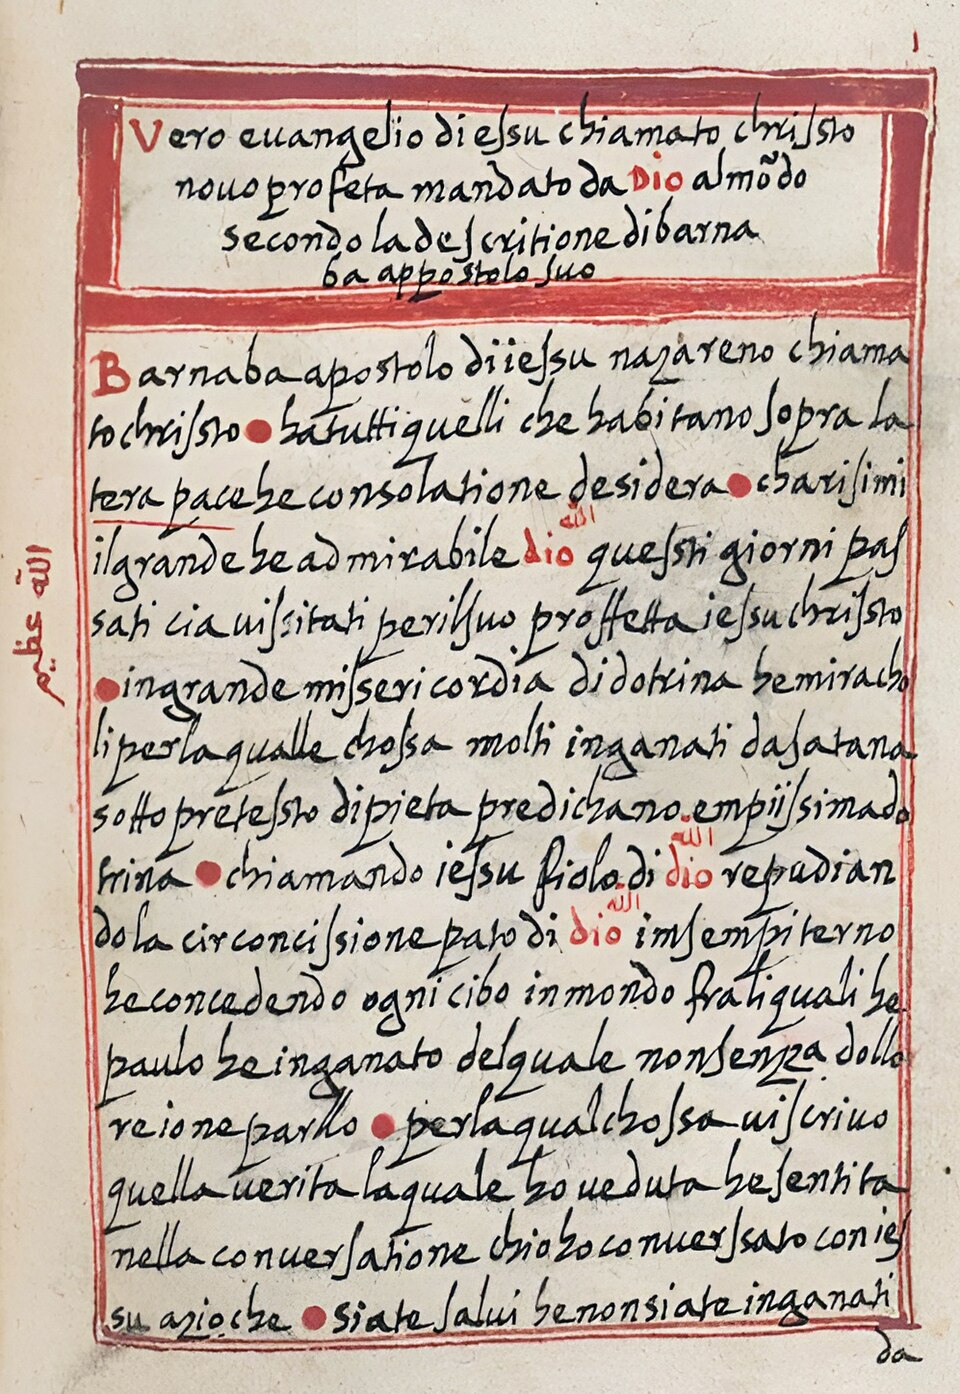 1
Vero euangelio di essu chiamato chrissto
nouo profeta mandato da Dio al mõdo
secondo la descritione di barna
ba appostolo suo
Barnaba apostolo di iessu nazareno chiama
to chrissto ● ha tutti quelli che habitano sopra la
tera pace he consolatione desidera ● charisimi
الله
il grande he admirabile dio quessti giorni pas
الله عظيم
sati cia uissitati per il suo proffetta iessu chrissto
● in grande missericordia di dotrina he miracho
li per la qualle chossa molti inganati da satana
sotto pretessto di pieta predichano empiissima do
الله
trina ● chiamando iessu fiolo di dio repudian
الله
do la circoncissione pato di dio in sempiterno
he concedendo ogni cibo in mondo fra li quali he
paulo he inganato del quale non senza dollo
re ione parllo ● per la qual chossa ui scriuo
quella uerita la quale ho ueduta he sentita
nella conuersatione chio ho conuerssato con ies
su azio che ● siate salui he non siate inganati
da